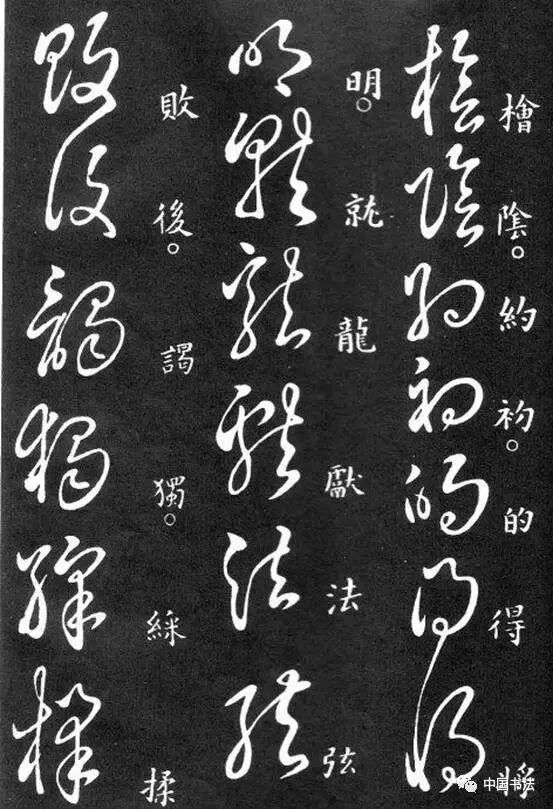 檜隂。約。的得將
明。就龍獻法弦
敗後。謁獨。綵揉
中国书法